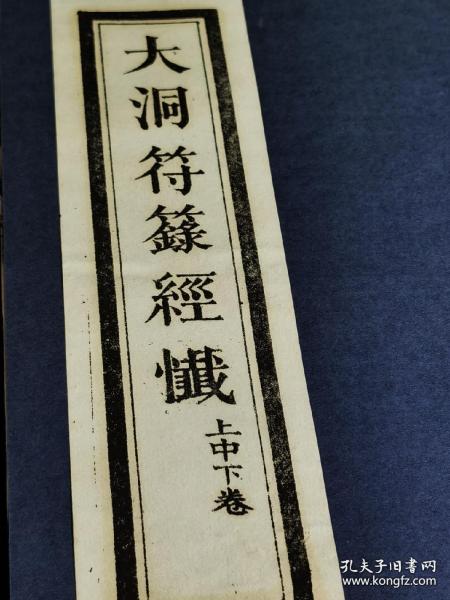 大洞符籙經懺
上中下卷
孔夫子旧书网
www.kongfz.com